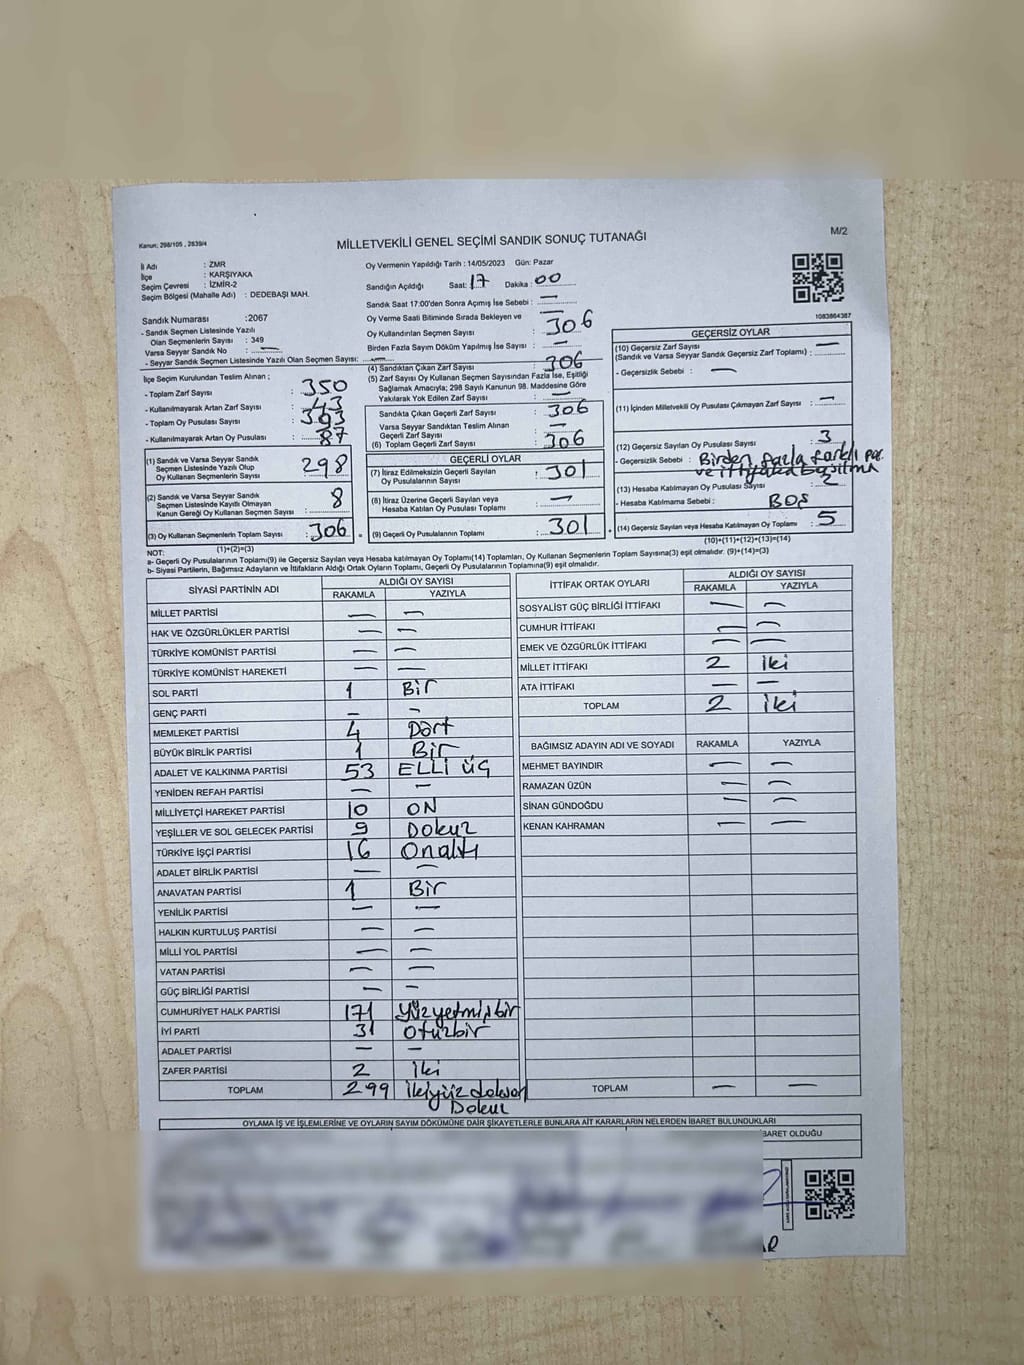 Kanun: 298/105 , 2839/4
MİLLETVEKİLİ GENEL SEÇİMİ SANDIK SONUÇ TUTANAĞI
M/2
İl Adı : ZMR
İlçe : KARŞIYAKA
Seçim Çevresi : İZMİR-2
Seçim Bölgesi (Mahalle Adı) : DEDEBAŞI MAH.
Oy Vermenin Yapıldığı Tarih : 14/05/2023 Gün: Pazar
Sandığın Açıldığı Saat: 17 Dakika : 00
Sandık Saat 17:00'den Sonra Açımış İse Sebebi : —
Oy Verme Saati Bitiminde Sırada Bekleyen ve
Oy Kullandırılan Seçmen Sayısı : 306
Birden Fazla Sayım Döküm Yapılmış İse Sayısı : —
1083864387
Sandık Numarası :2067
- Sandık Seçmen Listesinde Yazılı
Olan Seçmenlerin Sayısı : 349
Varsa Seyyar Sandık No : —
- Seyyar Sandık Seçmen Listesinde Yazılı Olan Seçmen Sayısı: —
İlçe Seçim Kurulundan Teslim Alınan ;
- Toplam Zarf Sayısı : 350
- Kullanılmayarak Artan Zarf Sayısı : 43
- Toplam Oy Pusulası Sayısı : 393
- Kullanılmayarak Artan Oy Pusulası : 87
(1) Sandık ve Varsa Seyyar Sandık
Seçmen Listesinde Yazılı Olup
Oy Kullanan Seçmenlerin Sayısı : 298
(2) Sandık ve Varsa Seyyar Sandık
Seçmen Listesinde Kayıtlı Olmayan
Kanun Gereği Oy Kullanan Seçmen Sayısı : 8
(3) Oy Kullanan Seçmenlerin Toplam Sayısı : 306
(1)+(2)=(3)
(4) Sandıktan Çıkan Zarf Sayısı : 306
(5) Zarf Sayısı Oy Kullanan Seçmen Sayısından Fazla İse, Eşitliği
Sağlamak Amacıyla; 298 Sayılı Kanunun 98. Maddesine Göre
Yakılarak Yok Edilen Zarf Sayısı : —
Sandıkta Çıkan Geçerli Zarf Sayısı : 306
Varsa Seyyar Sandıktan Teslim Alınan
Geçerli Zarf Sayısı : —
(6) Toplam Geçerli Zarf Sayısı : 306
GEÇERLİ OYLAR
(7) İtiraz Edilmeksizin Geçerli Sayılan
Oy Pusulalarının Sayısı : 301
(8) İtiraz Üzerine Geçerli Sayılan veya
Hesaba Katılan Oy Pusulası Toplamı : —
(9) Geçerli Oy Pusulalarının Toplamı : 301
GEÇERSİZ OYLAR
(10) Geçersiz Zarf Sayısı : —
(Sandık ve Varsa Seyyar Sandık Geçersiz Zarf Toplamı) :
- Geçersizlik Sebebi : —
(11) İçinden Milletvekili Oy Pusulası Çıkmayan Zarf Sayısı : —
(12) Geçersiz Sayılan Oy Pusulası Sayısı : 3
- Geçersizlik Sebebi : Birden fazla farklı par.
ve ittifaka basılma
(13) Hesaba Katılmayan Oy Pusulası Sayısı : 2
- Hesaba Katılmama Sebebi : BOŞ
(14) Geçersiz Sayılan veya Hesaba Katılmayan Oy Toplamı : 5
(10)+(11)+(12)+(13)=(14)
NOT:
a- Geçerli Oy Pusulalarının Toplamı(9) ile Geçersiz Sayılan veya Hesaba katılmayan Oy Toplamı(14) Toplamları, Oy Kullanan Seçmenlerin Toplam Sayısına(3) eşit olmalıdır. (9)+(14)=(3)
b- Siyasi Partilerin, Bağımsız Adayların ve İttifakların Aldığı Ortak Oyların Toplamı, Geçerli Oy Pusulalarının Toplamına(9) eşit olmalıdır.
SİYASİ PARTİNİN ADI ALDIĞI OY SAYISI
RAKAMLA YAZIYLA
MİLLET PARTİSİ — —
HAK VE ÖZGÜRLÜKLER PARTİSİ — —
TÜRKİYE KOMÜNİST PARTİSİ — —
TÜRKİYE KOMÜNİST HAREKETİ — —
SOL PARTİ 1 Bir
GENÇ PARTİ — —
MEMLEKET PARTİSİ 4 Dört
BÜYÜK BİRLİK PARTİSİ 1 Bir
ADALET VE KALKINMA PARTİSİ 53 ELLİ ÜÇ
YENİDEN REFAH PARTİSİ — —
MİLLİYETÇİ HAREKET PARTİSİ 10 ON
YEŞİLLER VE SOL GELECEK PARTİSİ 9 Dokuz
TÜRKİYE İŞÇİ PARTİSİ 16 Onaltı
ADALET BİRLİK PARTİSİ — —
ANAVATAN PARTİSİ 1 Bir
YENİLİK PARTİSİ — —
HALKIN KURTULUŞ PARTİSİ — —
MİLLİ YOL PARTİSİ — —
VATAN PARTİSİ — —
GÜÇ BİRLİĞİ PARTİSİ — —
CUMHURİYET HALK PARTİSİ 171 Yüzyetmişbir
İYİ PARTİ 31 Otuzbir
ADALET PARTİSİ — —
ZAFER PARTİSİ 2 İki
TOPLAM 299 İkiyüz doksan
Dokuz
İTTİFAK ORTAK OYLARI ALDIĞI OY SAYISI
RAKAMLA YAZIYLA
SOSYALİST GÜÇ BİRLİĞİ İTTİFAKI — —
CUMHUR İTTİFAKI — —
EMEK VE ÖZGÜRLÜK İTTİFAKI — —
MİLLET İTTİFAKI 2 iki
ATA İTTİFAKI — —
TOPLAM 2 iki
BAĞIMSIZ ADAYIN ADI VE SOYADI RAKAMLA YAZIYLA
MEHMET BAYINDIR — —
RAMAZAN ÜZÜN — —
SİNAN GÜNDOĞDU — —
KENAN KAHRAMAN — —
TOPLAM — —
OYLAMA İŞ VE İŞLEMLERİNE VE OYLARIN SAYIM DÖKÜMÜNE DAİR ŞİKAYETLERLE BUNLARA AİT KARARLARIN NELERDEN İBARET BULUNDUKLARI
BARET OLDUĞU